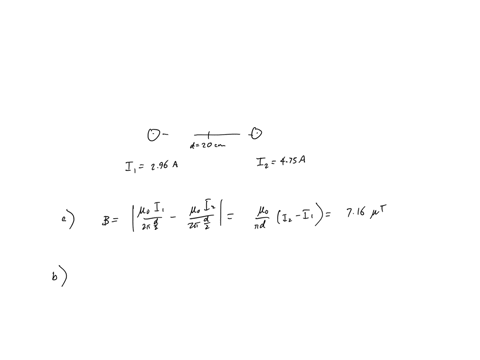 d=20 cm
I₁ = 2.96 A
I₂ = 4.75 A
a) B = | μ₀ I₁ / 2π d/2 − μ₀ I₂ / 2π d/2 | = μ₀ / πd (I₂ − I₁) = 7.16 μT
b)